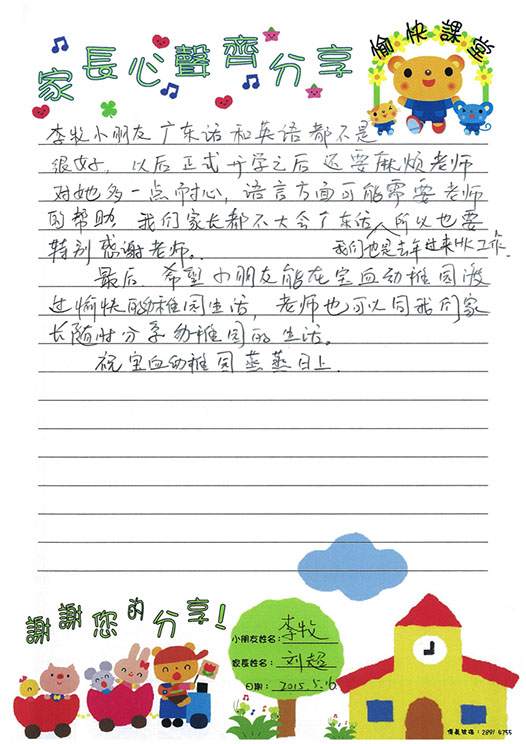 家長心聲齊分享
愉快課堂
李牧小朋友广东话和英语都不是
很好，以后正式开学之后还要麻烦老师
对她多一点耐心，语言方面可能需要老师
的帮助。我们家长都不大会广东话，所以也要
我们也是去年过来HK工作.
特别感谢老师。
最后，希望小朋友能在宝血幼稚园渡
过愉快的幼稚园生活，老师也可以同我们家
长随时分享幼稚园的生活。
祝宝血幼稚园蒸蒸日上.
謝謝您的分享!
小朋友姓名：李牧
家長姓名：刘超
日期：2015.5.16